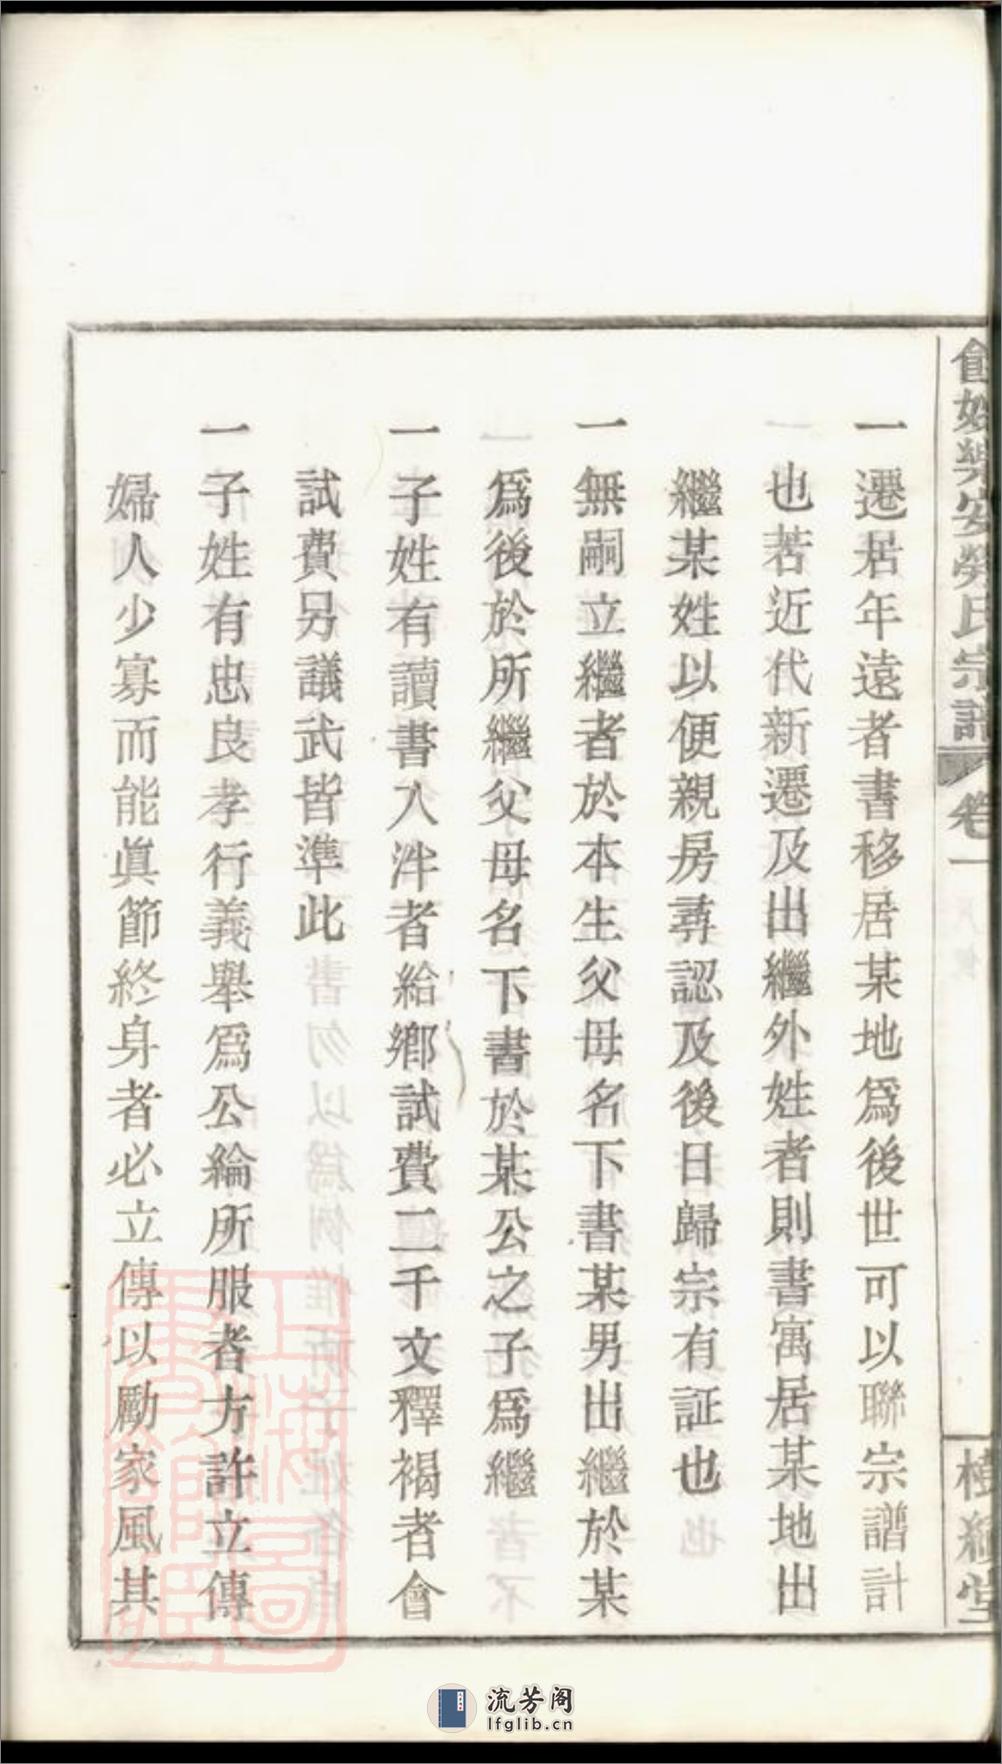 餘姚樂安勞氏宗譜 卷一
一遷居年遠者書移居某地爲後世可以聯宗譜計
也若近代新遷及出繼外姓者則書寓居某地出
繼某姓以便親房尋認及後日歸宗有証也
一無嗣立繼者於本生父母名下書某男出繼於某
爲後於所繼父母名下書於某公之子爲繼
一子姓有讀書入泮者給鄉試費二千文釋褐者會
試費另議武皆準此
一子姓有忠良孝行義舉爲公論所服者方許立傳
婦人少寡而能眞節終身者必立傳以勵家風其
流芳阁
lfglib.cn